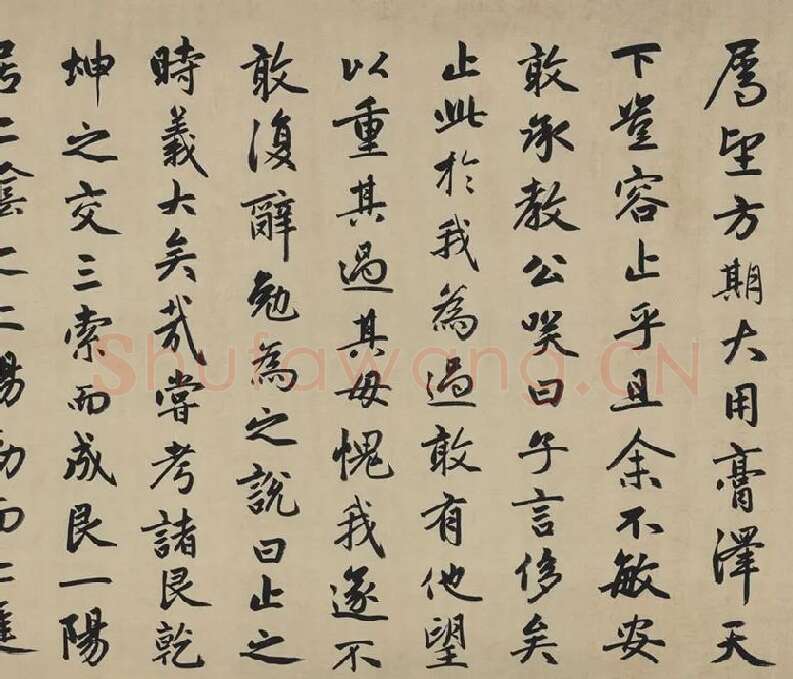 属望方期大用膏澤天
下豈容止乎且余不敏安
敢承教公咲曰子言侈矣
止此於我為過敢有他望
以重其過其毋愧我遂不
敢復辭勉為之說曰止之
時義大矣哉嘗考諸艮乾
坤之交三索而成艮一陽
居二陰之上陽動而上進
Shufawang.CN